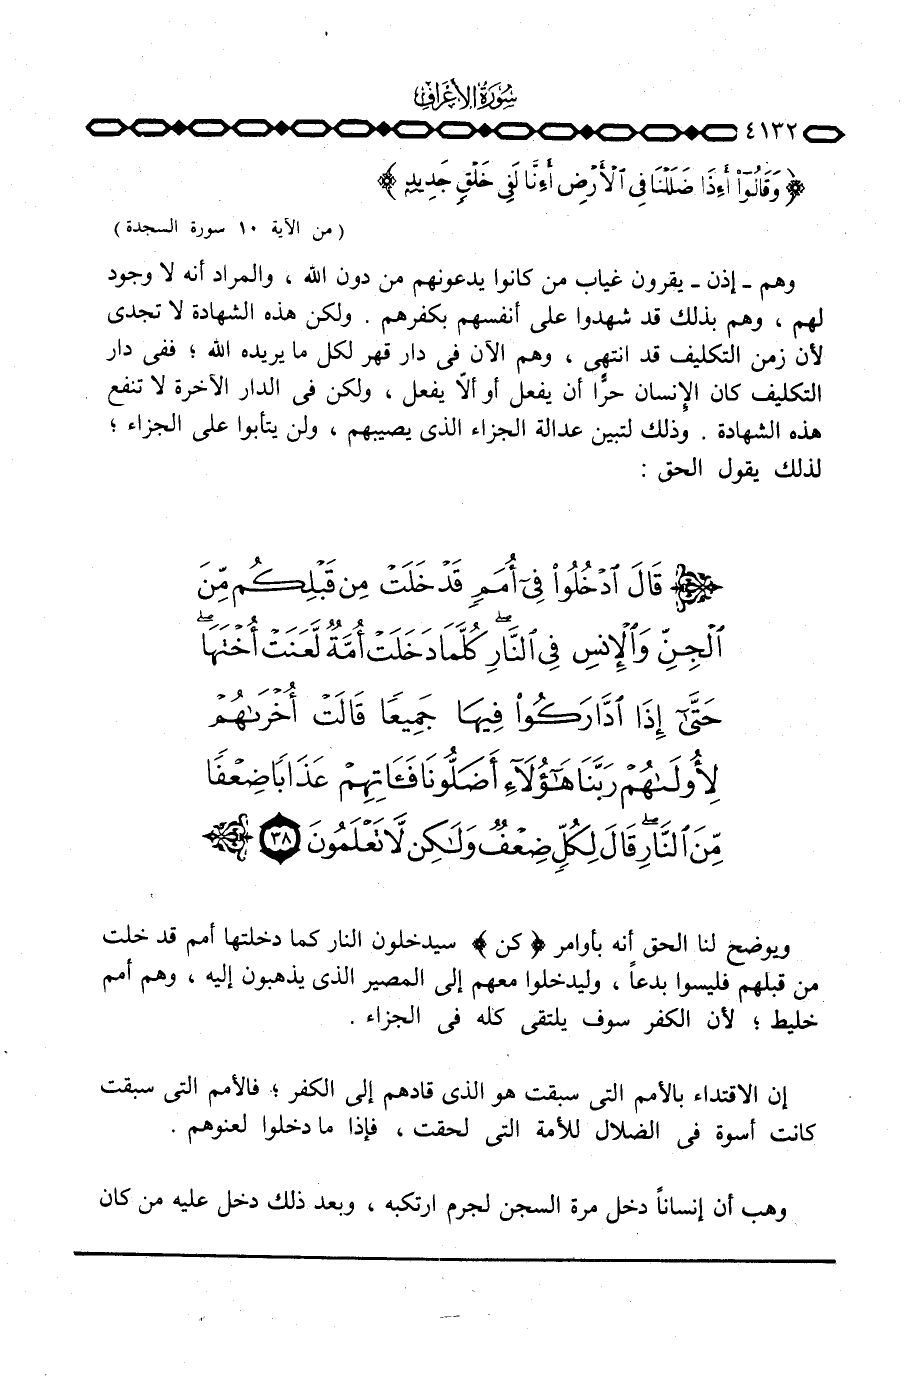 سُورَةُ الأَعْرَافِ
٤١٣٢
﴿ وَقَالُوٓا۟ أَءِذَا ضَلَلْنَا فِى ٱلْأَرْضِ أَءِنَّا لَفِى خَلْقٍ جَدِيدٍ ﴾
( من الآية ١٠ سورة السجدة )
وهم ـ إذن ـ يقرون غياب من كانوا يدعونهم من دون الله ، والمراد أنه لا وجود
لهم ، وهم بذلك قد شهدوا على أنفسهم بكفرهم . ولكن هذه الشهادة لا تجدى
لأن زمن التكليف قد انتهى ، وهم الآن فى دار قهر لكل ما يريده الله ؛ ففى دار
التكليف كان الإنسان حرًّا أن يفعل أو ألاّ يفعل ، ولكن فى الدار الآخرة لا تنفع
هذه الشهادة . وذلك لتبين عدالة الجزاء الذى يصيبهم ، ولن يتأبوا على الجزاء ؛
لذلك يقول الحق :
﴿ قَالَ ٱدْخُلُوا۟ فِىٓ أُمَمٍ قَدْ خَلَتْ مِن قَبْلِكُم مِّنَ
ٱلْجِنِّ وَٱلْإِنسِ فِى ٱلنَّارِ ۖ كُلَّمَا دَخَلَتْ أُمَّةٌ لَّعَنَتْ أُخْتَهَا ۖ
حَتَّىٰٓ إِذَا ٱدَّارَكُوا۟ فِيهَا جَمِيعًا قَالَتْ أُخْرَىٰهُمْ
لِأُولَىٰهُمْ رَبَّنَا هَـٰٓؤُلَآءِ أَضَلُّونَا فَـَٔاتِهِمْ عَذَابًا ضِعْفًا
مِّنَ ٱلنَّارِ ۖ قَالَ لِكُلٍّ ضِعْفٌ وَلَـٰكِن لَّا تَعْلَمُونَ ٣٨ ﴾
ويوضح لنا الحق أنه بأوامر ﴿ كن ﴾ سيدخلون النار كما دخلتها أمم قد خلت
من قبلهم فليسوا بدعاً ، وليدخلوا معهم إلى المصير الذى يذهبون إليه ، وهم أمم
خليط ؛ لأن الكفر سوف يلتقى كله فى الجزاء .
إن الاقتداء بالأمم التى سبقت هو الذى قادهم إلى الكفر ؛ فالأمم التى سبقت
كانت أسوة فى الضلال للأمة التى لحقت ، فإذا ما دخلوا لعنوهم .
وهب أن إنساناً دخل مرة السجن لجرم ارتكبه ، وبعد ذلك دخل عليه من كان